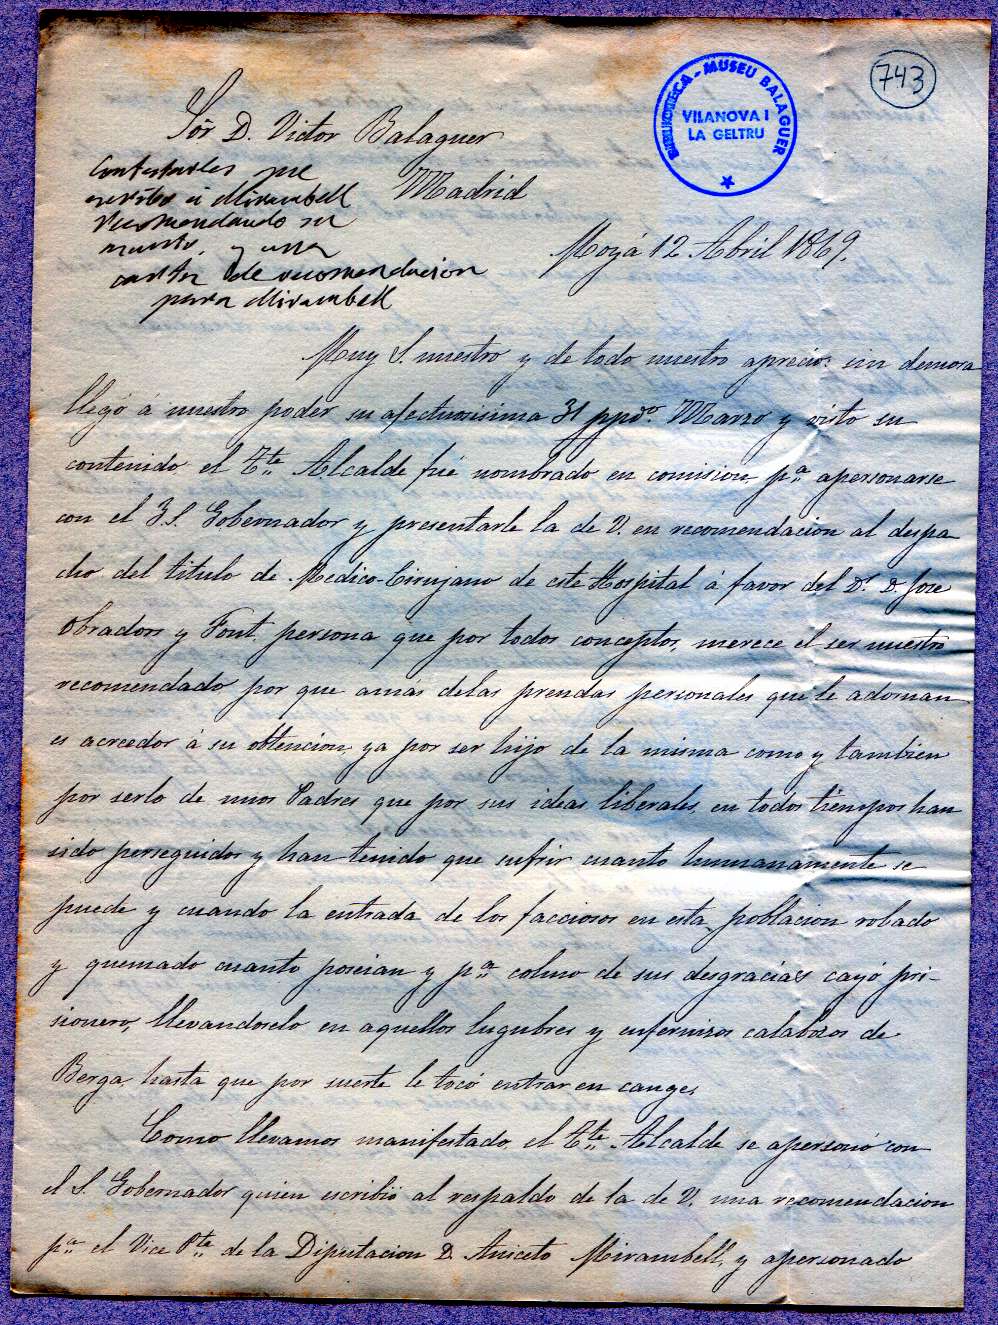 743
BIBLIOTECA-MUSEU BALAGUER
VILANOVA I
LA GELTRU
Sõr D. Victor Balaguer
Madrid
Contestarles que
escribo á Mirambell
recomendando su
asunto, y una
carta de recomendacion
para Mirambell
Moyá 12 Abril 1869.
Muy S. nuestro y de todo nuestro aprecio: sin demora
llegó á nuestro poder su afectuosisima 31 ppdo. Marzo y visto su
contenido el Tte. Alcalde fué nombrado en comision pa. apersonarse
con el S. Gobernador y presentarle la de V. en recomendacion al despa
cho del titulo de Medico-Cirujano de este Hospital á favor del Dr. D. Jose
Obradors y Font, persona que por todos conceptos, merece el ser nuestro
recomendado por que amás delas prendas personales que le adornan
es acreedor á su obtencion, ya por ser hijo de la misma como y tambien
por serlo de unos Padres que por sus ideas liberales, en todos tiempos han
sido perseguidos y han tenido que sufrir cuanto humanamente se
puede y cuando la entrada de los facciosos en esta poblacion robado
y quemado cuanto poseian y pa. colmo de sus desgracias cayó pri-
sionero, llevandoselo en aquellos lugubres y enfermizos calabosos de
Berga, hasta que por suerte le tocó entrar en canges,
Como llevamos manifestado, el Tte. Alcalde se apersonó con
el S. Gobernador quien escribió al respaldo de la de V. una recomendacion
pa. el Vice Pte. de la Diputacion D. Aniceto Mirambell, y apersonado